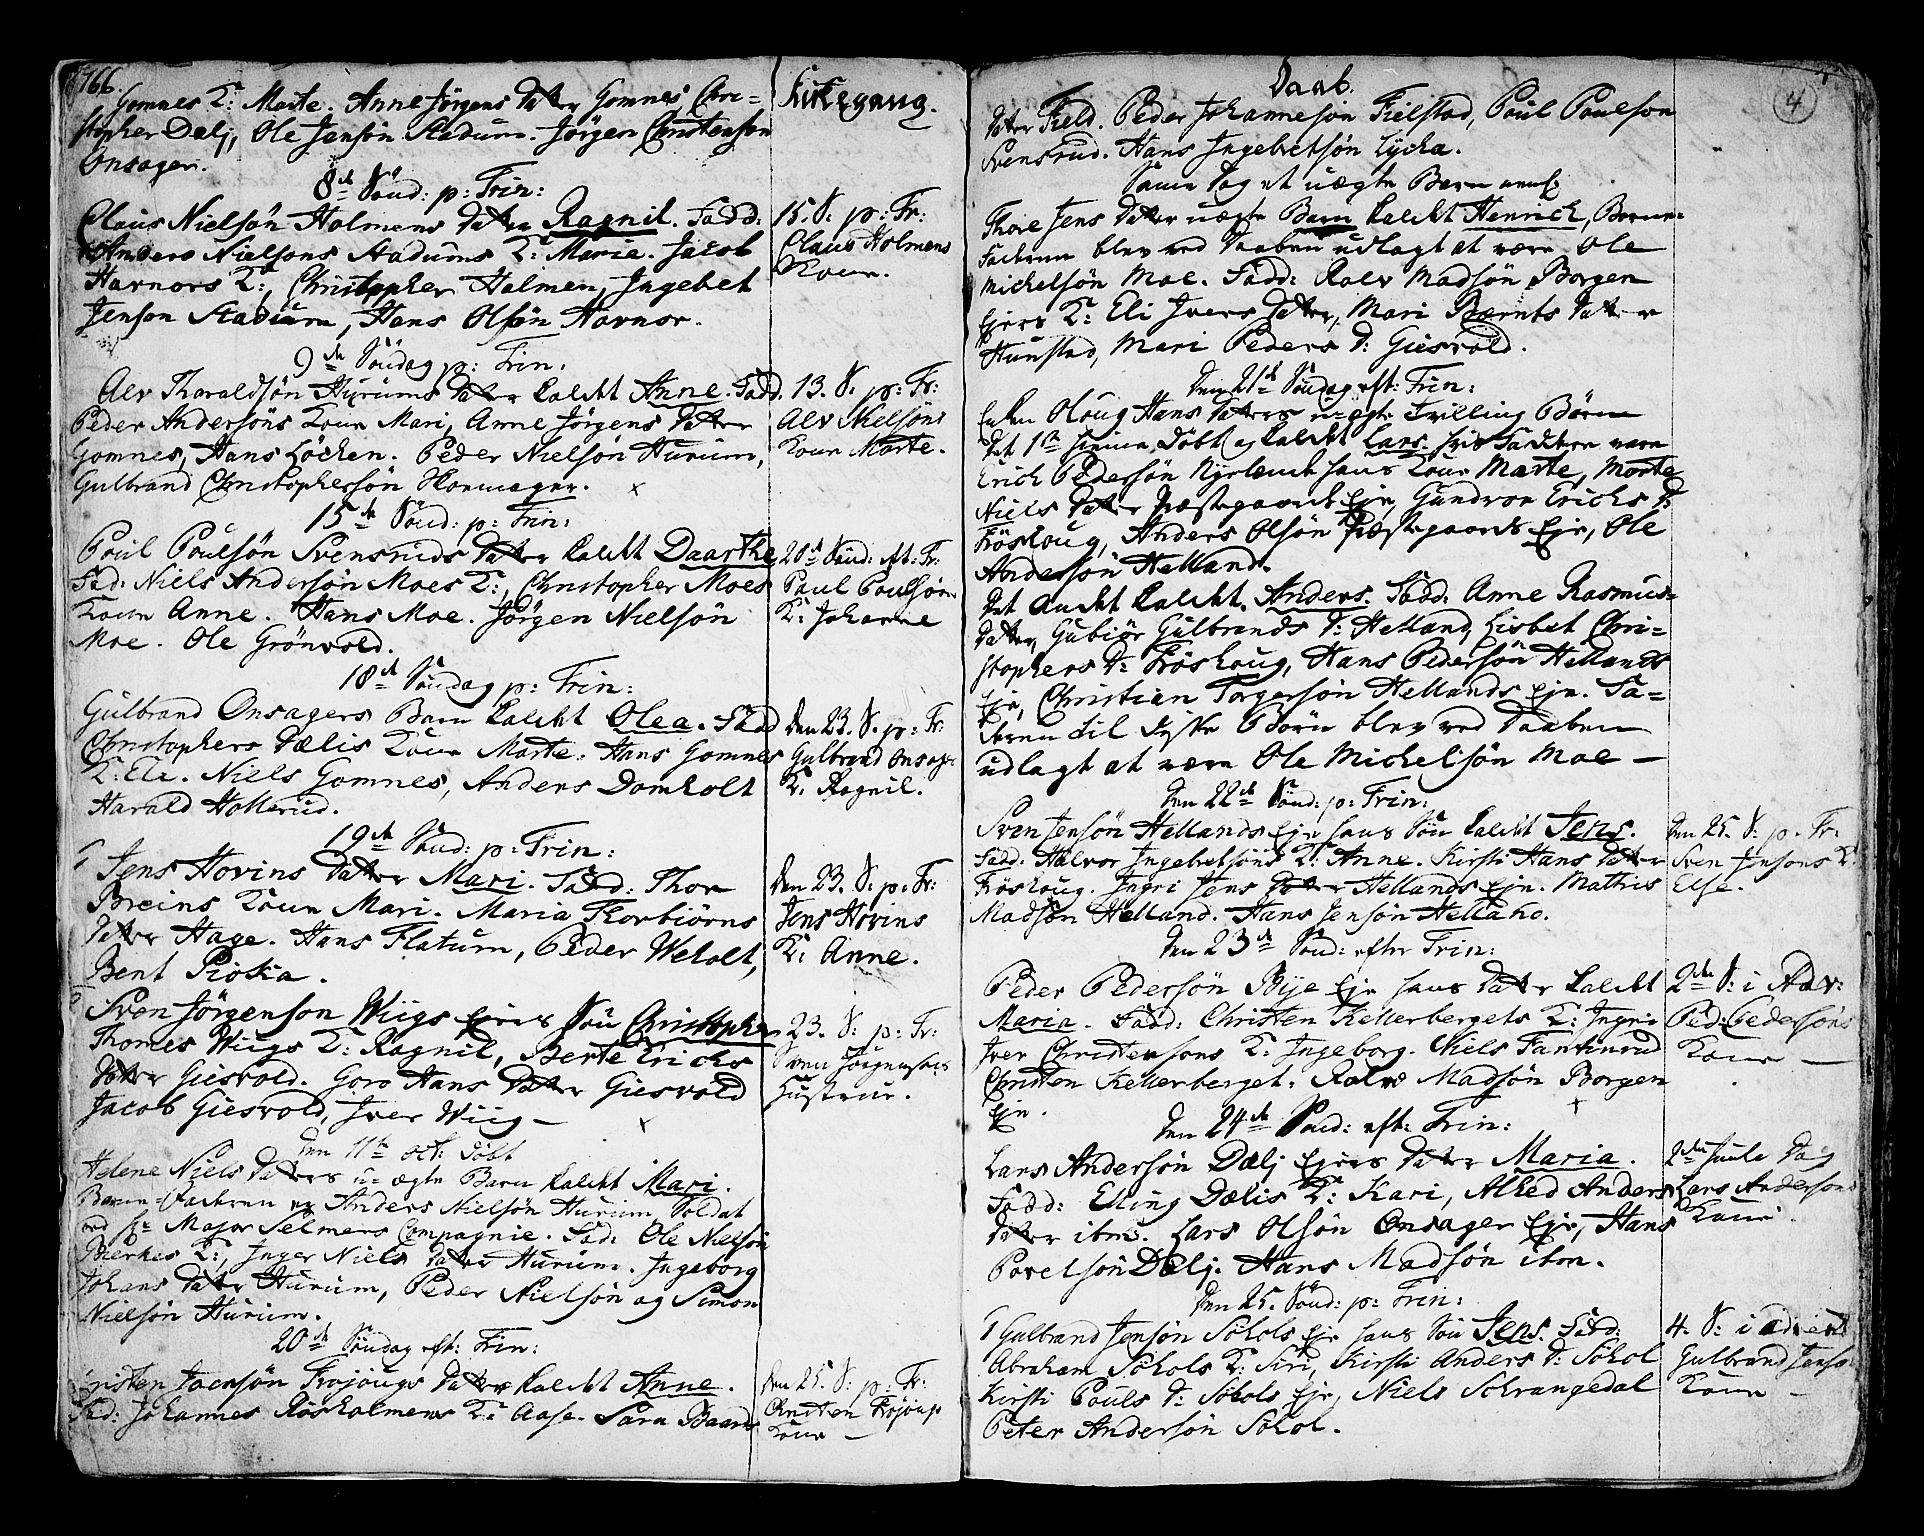 1766.
Gomnes K: Marte. Anne Jörgens Datter Gomnes, Chri=
stopher Dælj, Ole Jensön Stadum. Jörgen Christensön
Onsager.
8de Sönd: p: Trin:
Claus Nielsön Holmens Datter Ragnil. Fadd:
Anders Nielsöns Stadums K: Marie. Jacob
Havnors K:, Christopher Holmen, Ingebet
Jensön Stadum, Hans Olsön Havnor.
9de Söndag p: Trin:
Alv Tharaldsön Hurums Datter kaldt Anne. Fadd.
Peder Andersöns Kone Mari, Anne Jörgens Datter
Gomnes, Hans Löcken. Peder Nielsön Hurum,
Gulbrand Christophersön
15de Sönd: p: Trin:
Poul Poulsön Svensruds Datter kaldt Daarthe
Fad: Niels Andersön Moes K:, Christopher Moes
Kone Anne. Hans Moe. Jörgen Nielsön
Moe. Ole Grönvold.
18de Söndag p: Trin:
Gulbrand Onsagers Barn kaldt Olea. Fadd
Christophers Dælis Kone Marte. Hans Gomnes
K: Eli. Niels Gomnes, Anders Domholt
Harald Hollerud.
19de Sönd: p: Trin:
Jens Hovins Datter Mari. Fadd: Thor
Breins Kone Mari. Maria Thorbiörns
Datter Hage. Hans Flatum, Peder Weholt,
Bent Pioska.
Sven Jörgensön Wiigs Ejers Sön Christopher
Thomes Wiigs K: Ragnil, Berte Erichs
Datter Giesvold. Goro Hans Datter Giesvold
Jacob Giesvold, Iver Wiig –
Den 11te oct: döbt
Helene Niels Datters u=ægte Barn kaldt Mari.
Barne=Faderen er Anders Nielsön Hurum, Soldat
ved Hr Major Selmers Compagnie. Fad: Ole Nielsön
Bierkes K:, Inger Niels Datter Hurum. Ingeborg
Johans Datter Hurum, Peder Nielsön og Simon
Nielsön Hurum.
20de Söndag eft: Trin:
Christen Jacobsön Frojougs Datter kaldt Anne.
Fad: Johannes Rösholmens K: Aase. Sara Baards
Kirkegang.
15. S: p: Tr:
Claus Holmens
Kone.
13. S: p: Tr:
Alv Nielsöns
Kone Marte.
20de Sönd: eft: Tr:
Paul Poulsöns
K: Johanne
Den 23. S. p: Tr:
Gulbrand Onsager
K: Ragnil.
Den 23. S: p: Tr:
Jens Hovins
K: Anne.
23. S: p: Tr:
Sven Jörgensöns
Hustrue.
Den 25. S: p: Tr:
Christen Frojougs
Kone –
Daab.
4
Datter Field. Peder Johannesön Fielstad, Poul Poulsön
Svensrud. Hans Ingebretsön Lycka.
Samme Dag et uægte Barn
Thore Jens Datter uægte Barn kaldt Henrich, Barne=
Faderen blev ved Daaben udlagt at være Ole
Michelsön Moe. Fadd: Rolv Madsön Borgen
Ejers K: Eli Ivers Datter, Mari Bernts Datter
Hunstad, Mari Peders D: Giesvold.
Den 21de Söndag eft: Trin:
Enken Oloug Hans Datters uægte Tvilling Börn
Det 1te döbt og kaldt Lars, hvis Faddere vare
Erich Pedersön hans Kone Marte, Marte
Niels Datter Præstegaards Eje, Gundvor Erichs D:
Fröshoug, Anders Olsön Præstegaards Eje, Ole
Andersön Helland.
Det andet kaldt Anders. Fadd: Anne Rasmus=
Datter, Gubiör Gulbrands D: Helland, Lisbet Chri=
stophers D: Fröshoug, Hans Pedersön Hellands
Eje, Christian Torgersön Hellands Eje. Fa=
deren til disse Börn blev ved Daaben
udlagt at være Ole Michelsön Moe –
Den 22de Sönd: p: Trin:
Sven Jensön Hellands Eje hans Sön kaldt Jens.
Fadd: Halvor Ingebretsöns K: Anne. Kirsti Hans Datter
Fröshoug. Ingri Jens Datter Hellands Eje. Mathis
Madsön Helland. Hans Jensön Helland.
Den 23de Sönd: efter Trin:
Peder Pedersön Bije Eje hans Datter kaldt
Maria. Fadd: Christen Kellerbergets K: Ingri
Iver Christensöns K: Ingeborg. Niels Fantenrud
Christen Kellerberget. Rolv Madsön Borgen
Eje.
Den 24de Sönd: eft: Trin:
Lars Andersön Dælj Ejers Datter Maria.
Fadd: Elling Dælis K: Kari, Alhed Anders
Datter ibm. Lars Olsön Onsager Eje, Hans
Povelsön Dælj. Hans Madsön ibm.
Den 25. Sönd: p: Trin:
Gulbrand Jensön Sohols Eje hans Sön Jens. Fadd:
Abraham Sohols K: Siri, Kirsti Anders D: Sohol
Kirsti Pouls D: Sohols Eje, Niels Schrangedal
Peter Andersön Sohol.
Den 25. S: p. Tr:
Sven Jensöns K:
Else.
2den S: i Adv:
Ped: Pedersöns
Kone –
2den Juule Dag
Lars Andersöns
Kone.
4. S: i Advent
Gulbrand Jensön
Kone –